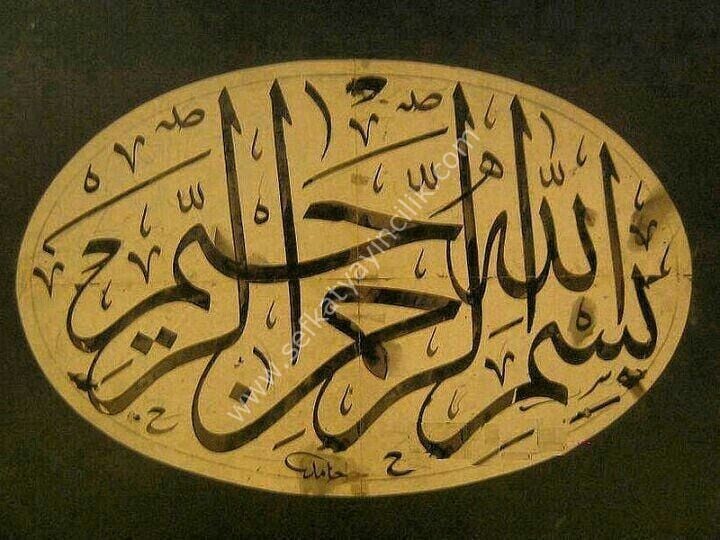 بِسْمِ اللّٰهِ الرَّحْمٰنِ الرَّحِيمِ
حامد
www.sefkatyayincilik.com